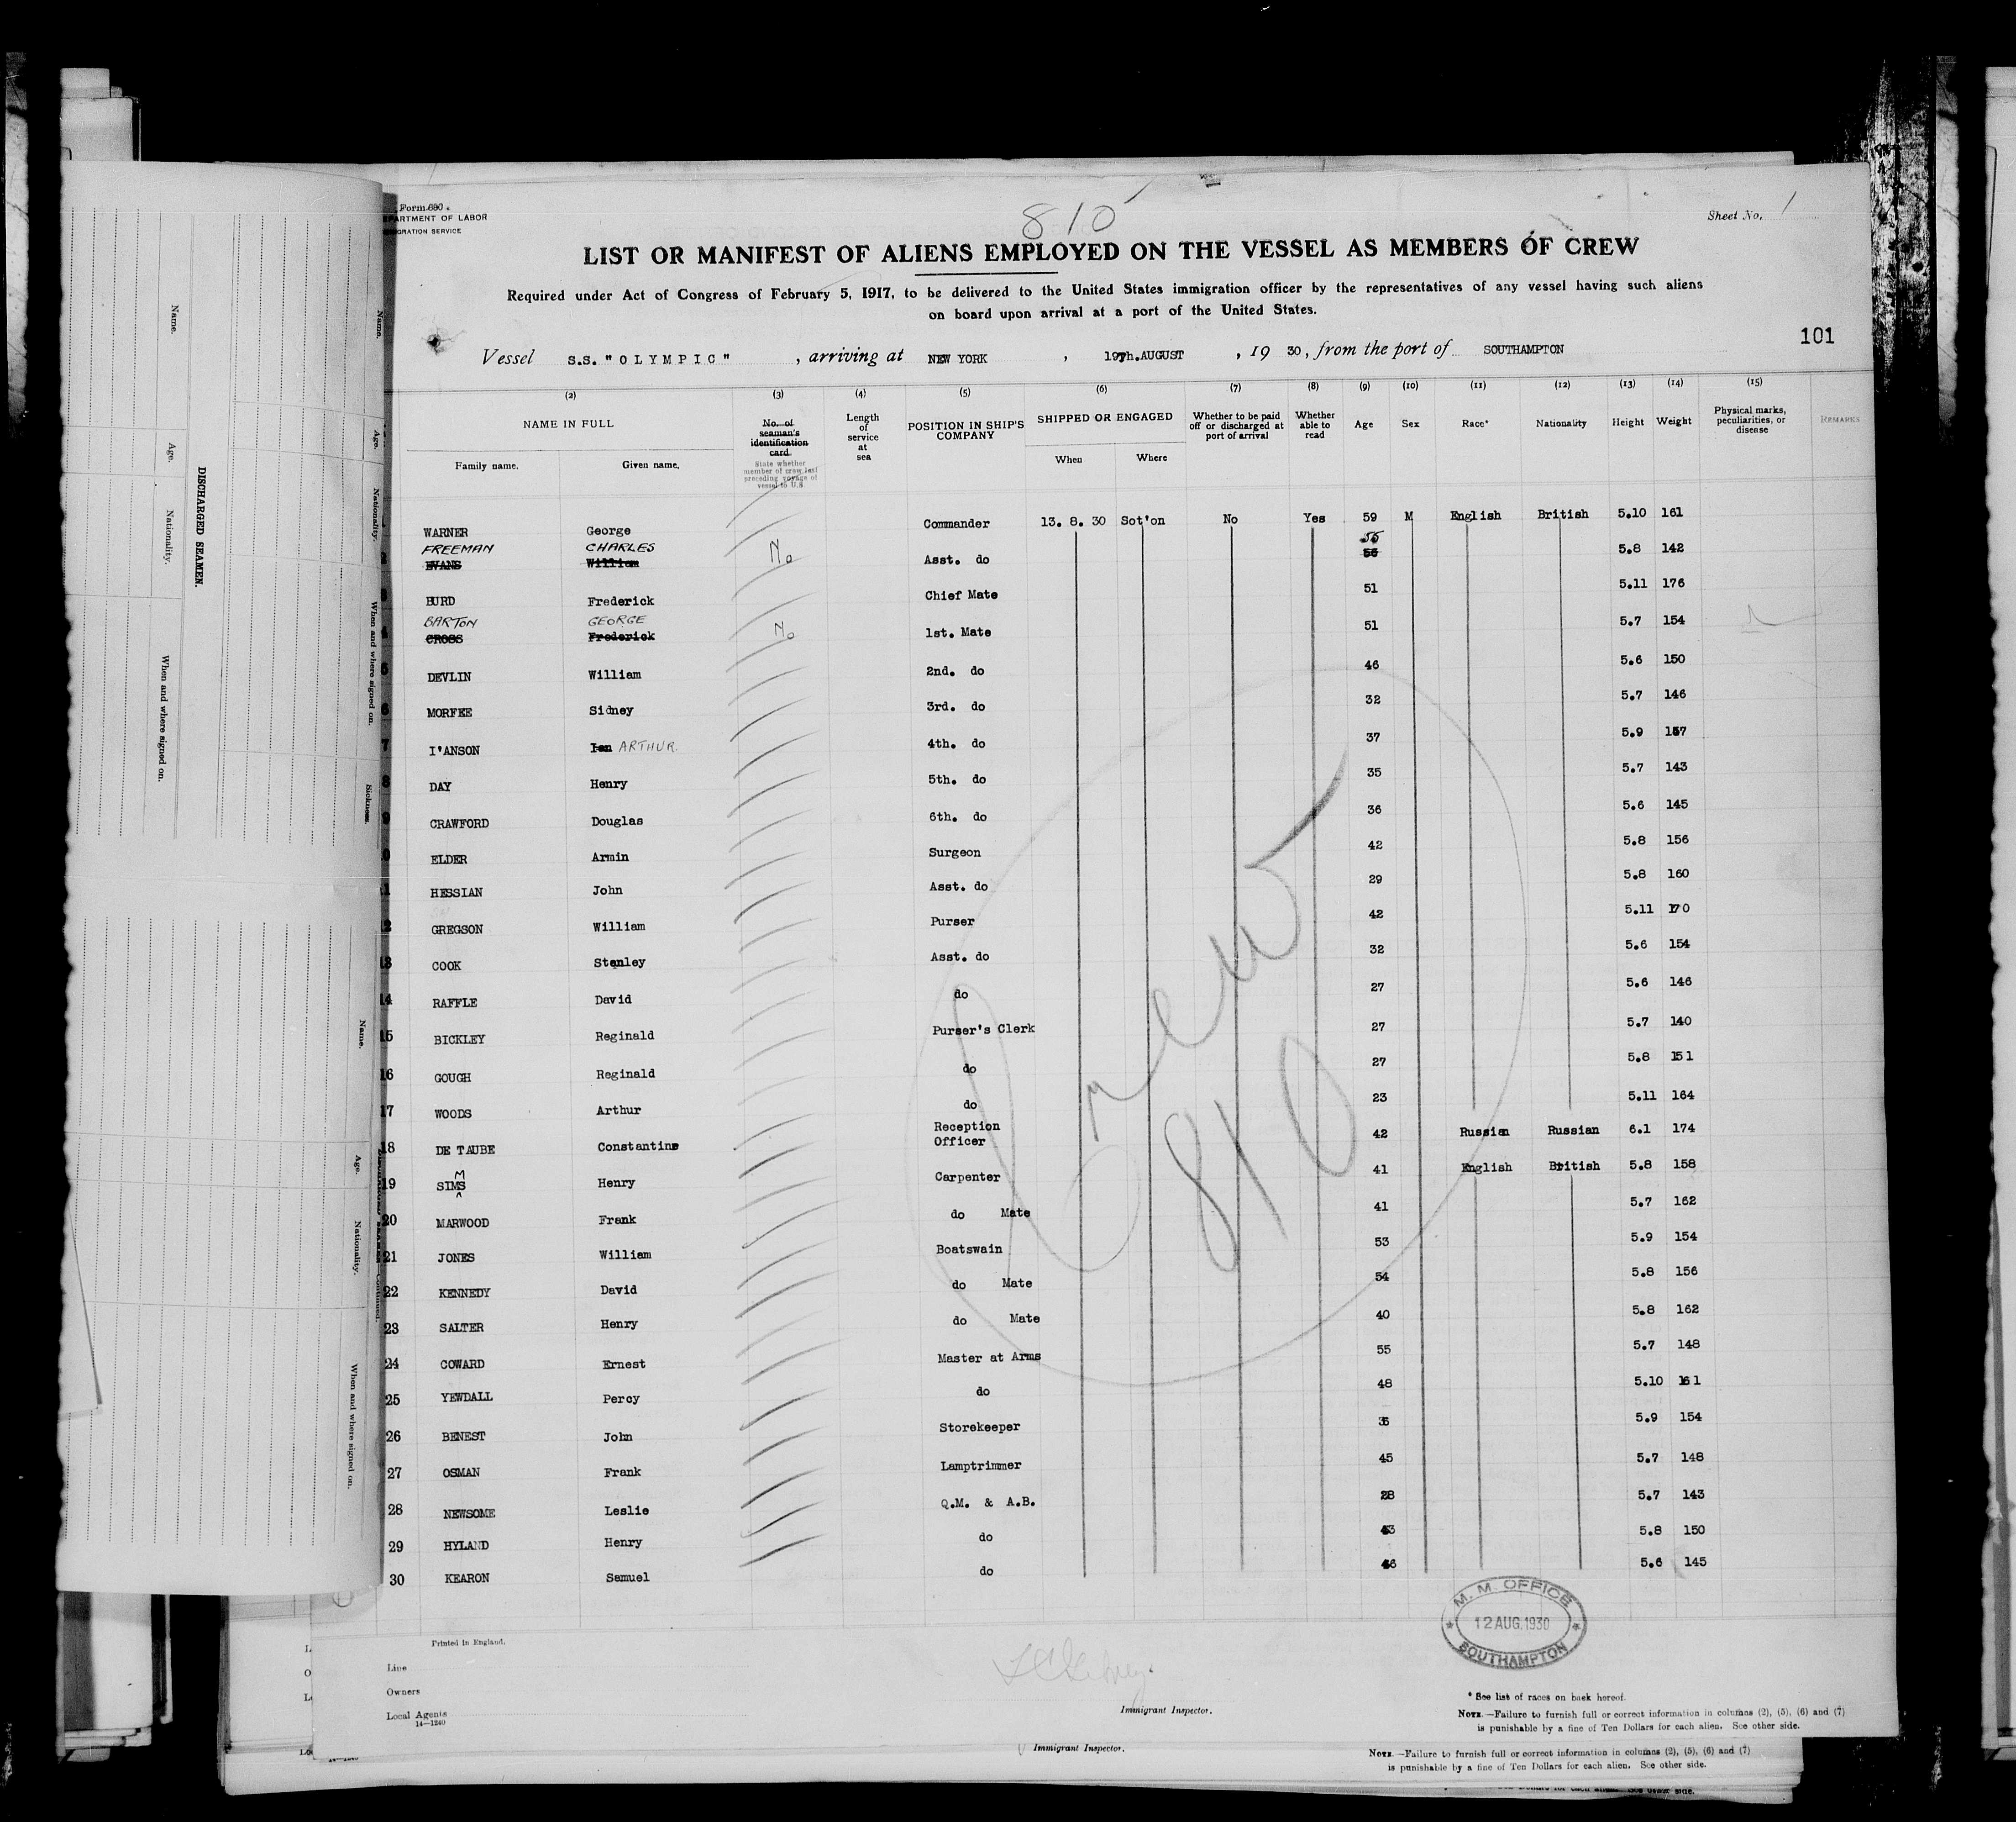 Form 680
DEPARTMENT OF LABOR
IMMIGRATION SERVICE
810
Sheet No. 1
LIST OR MANIFEST OF ALIENS EMPLOYED ON THE VESSEL AS MEMBERS OF CREW
Required under Act of Congress of February 5, 1917, to be delivered to the United States immigration officer by the representatives of any vessel having such aliens
on board upon arrival at a port of the United States.
101
Vessel S.S. "OLYMPIC", arriving at NEW YORK, 19th. AUGUST, 1930, from the port of SOUTHAMPTON
(2) (3) (4) (5) (6) (7) (8) (9) (10) (11) (12) (13) (14) (15)
NAME IN FULL
Family name. Given name.
No. of seaman's identification card.
State whether member of crew last preceding voyage of vessel to U.S.
Length of service at sea
POSITION IN SHIP'S COMPANY
SHIPPED OR ENGAGED
When Where
Whether to be paid off or discharged at port of arrival
Whether able to read
Age Sex Race* Nationality Height Weight
Physical marks, peculiarities, or disease
REMARKS
WARNER George Commander 13. 8. 30 Sot'on No Yes 59 M English British 5.10 161
FREEMAN CHARLES 55
2 EVANS William No Asst. do 56 5.8 142
3 BURD Frederick Chief Mate 51 5.11 176
BARTON GEORGE
4 CROSS Frederick No 1st. Mate 51 5.7 154
5 DEVLIN William 2nd. do 46 5.6 150
6 MORFEE Sidney 3rd. do 32 5.7 146
7 I'ANSON Ian ARTHUR. 4th. do 37 5.9 157
8 DAY Henry 5th. do 35 5.7 143
9 CRAWFORD Douglas 6th. do 36 5.6 145
0 ELDER Armin Surgeon 42 5.8 156
1 HESSIAN John Asst. do 29 5.8 160
2 GREGSON William Purser 42 5.11 170
13 COOK Stanley Asst. do 32 5.6 154
14 RAFFLE David do 27 5.6 146
15 BICKLEY Reginald Purser's Clerk 27 5.7 140
16 GOUGH Reginald do 27 5.8 151
17 WOODS Arthur do 23 5.11 164
18 DE TAUBE Constantine Reception Officer 42 Russian Russian 6.1 174
19 SIMMS Henry Carpenter 41 English British 5.8 158
20 MARWOOD Frank do Mate 41 5.7 162
21 JONES William Boatswain 53 5.9 154
22 KENNEDY David do Mate 54 5.8 156
23 SALTER Henry do Mate 40 5.8 162
24 COWARD Ernest Master at Arms 55 5.7 148
25 YEWDALL Percy do 48 5.10 161
26 BENEST John Storekeeper 35 5.9 154
27 OSMAN Frank Lamptrimmer 45 5.7 148
28 NEWSOME Leslie Q.M. & A.B. 28 5.7 143
29 HYLAND Henry do 43 5.8 150
30 KEARON Samuel do 46 5.6 145
Crew
810
M. M. OFFICE
12 AUG. 1930
SOUTHAMPTON
Printed in England.
Line
Owners
Local Agents
14—1240
Immigrant Inspector.
* See list of races on back hereof.
NOTE.—Failure to furnish full or correct information in columns (2), (5), (6) and (7)
is punishable by a fine of Ten Dollars for each alien. See other side.
Immigrant Inspector.
NOTE.—Failure to furnish full or correct information in columns (2), (5), (6) and (7)
is punishable by a fine of Ten Dollars for each alien. See other side.
DISCHARGED SEAMEN.
Name. Age. Nationality. When and where signed on.
Name. Age. Nationality. When and where signed on. Sickness.
Name. Age. Nationality. When and where signed on.